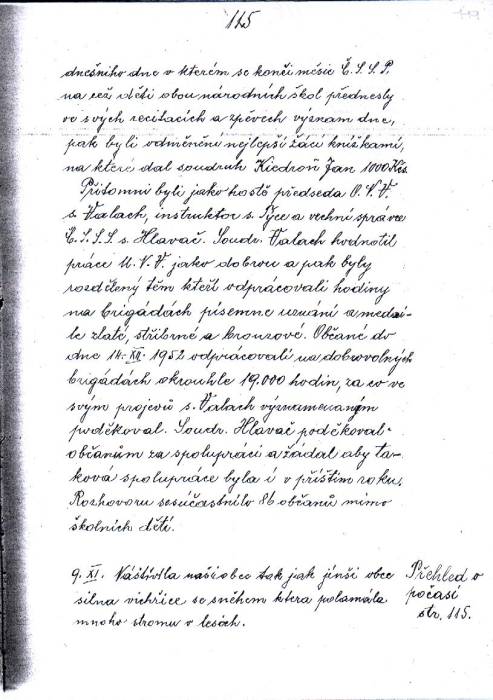 115
dnešního dne v kterém se končí měsíc Č.S.S.P.
na což děti obou národních škol přednesly
ve svých recitacích a zpěvech význam dne,
pak byli odměněni nejlepší žáci knížkami,
na které dal soudruh Kiedroň Jan 1000 Kčs.
Přítomni byli jako hosté předseda O.V.V.
s. Valach, instruktor s. Pyce a vechni správce
Č.S.S.S s. Hlaváč. Soudr. Valach hodnotil
práci M.V.V. jako dobrou a pak byly
rozděleny těm kteří odpracovali hodiny
na brigádách písemne uznání a medai-
le zlaté, stříbrné a bronzové. Občané do
dne 14. XII. 1952 odpracovali na dobrovolných
brigádách okrouhle 19.000 hodin, za co ve
svým projevů s. Valach význameraným
poděkoval. Soudr. Hlaváč poděkoval
občanům za spolupráci a žádal aby ta-
ková spolupráce byla i v příštím roku.
Rozhovoru se súčastnilo 86 občanů mimo
školních dětí.
9. XI. Náštívila naši obec tak jak jinší obce
silna vichřice se sněhem ktera polamála
mnoho stromu v lesách.
Přehled o
počasí
str. 115.